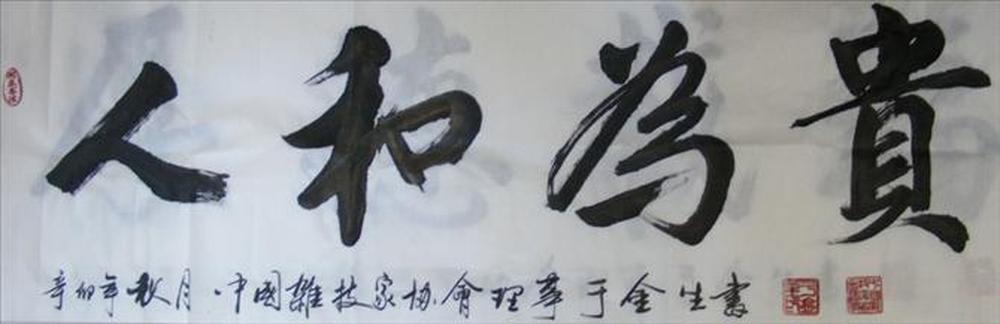 人和為貴
辛卯年秋月中國雜技家協會理事于金生書